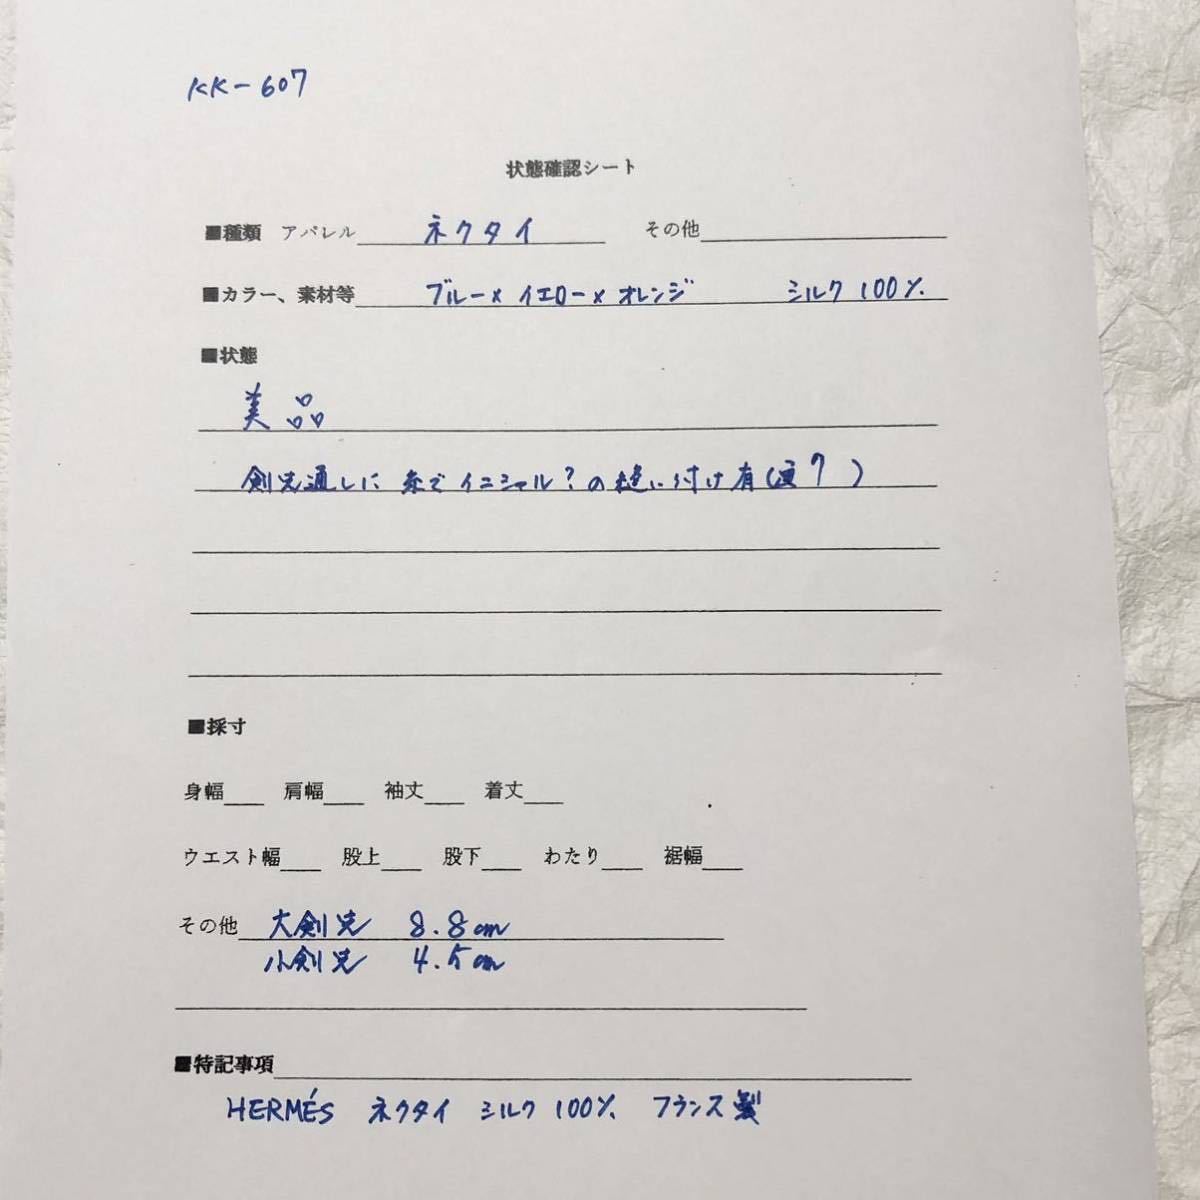 KK-607
状態確認シート
■種類 アパレル ネクタイ その他
■カラー、素材等 ブルー×イエロー×オレンジ シルク100%
■状態
美品
剣先通しに糸でイニシャル?の縫い付け有( ワ )
■採寸
身幅 肩幅 袖丈 着丈
ウエスト幅 股上 股下 わたり 裾幅
その他 大剣先 8.8cm
小剣先 4.5cm
■特記事項
HERMÉS ネクタイ シルク100% フランス製